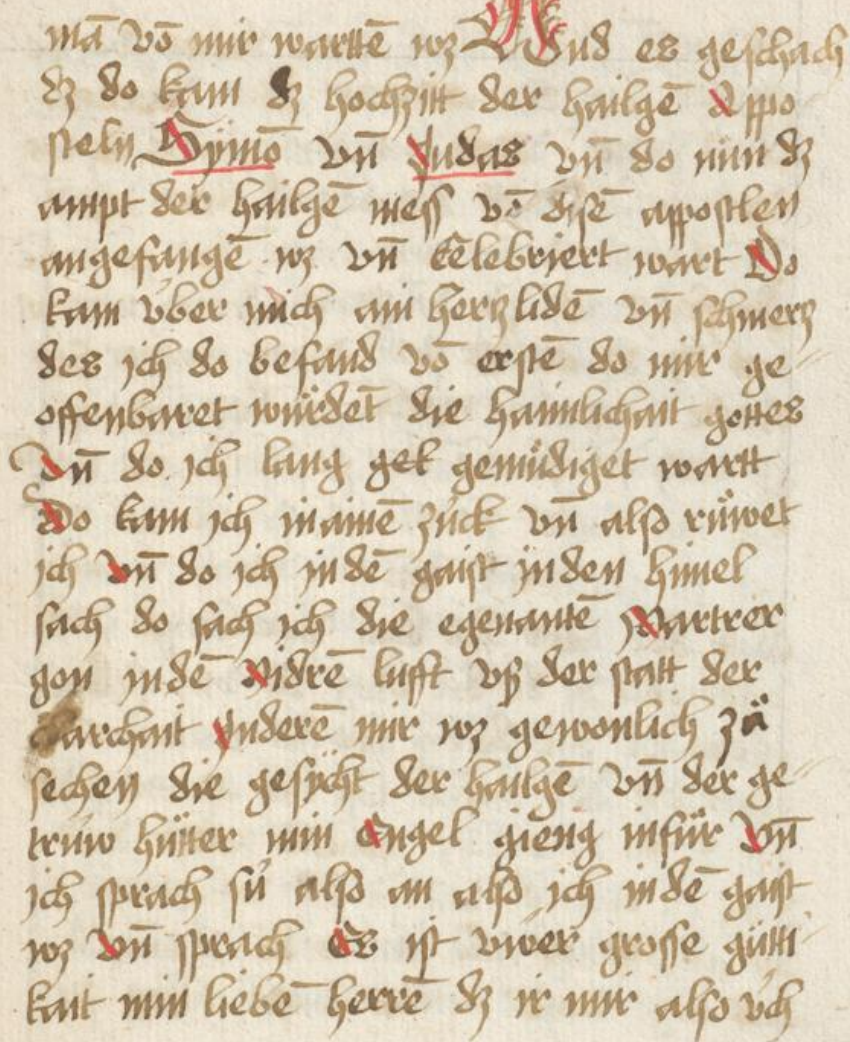 mā vō mir warttē wz Vnd es geschach
dz do kam dz hochzitt der hailgē appo
steln Symō vn̄ Judas vn̄ do nun dz
ampt der hailgē mess vō disē appostlen
angefangē wz vn̄ Cēlebriert wart Do
kam v́ber mich ain hertzlidē vn̄ schmertz
des ich do befand vō erstē do mir ge-
offenbaret wurdēt die haimlichait gottes
Vn̄ do ich lang gek gemüdiget wartt
Do kam ich in ainē zuck vn̄ also rüwet
ich vn̄ do ich in dē gaist in den himel
sach do sach ich die egenantē Martrer
gon in dē nidrē luft vß der statt der
clarchait Jn derē mir wz gewonlich zů
sechen die gesycht der hailgē vn̄ der ge-
truw hütter min Engel gieng in für vn̄
ich sprach sú also an also ich in dē gaist
wz vn̄ sprach Es ist vwer grosse gütti-
kait min liebē herrē dz ir mir also v́ch